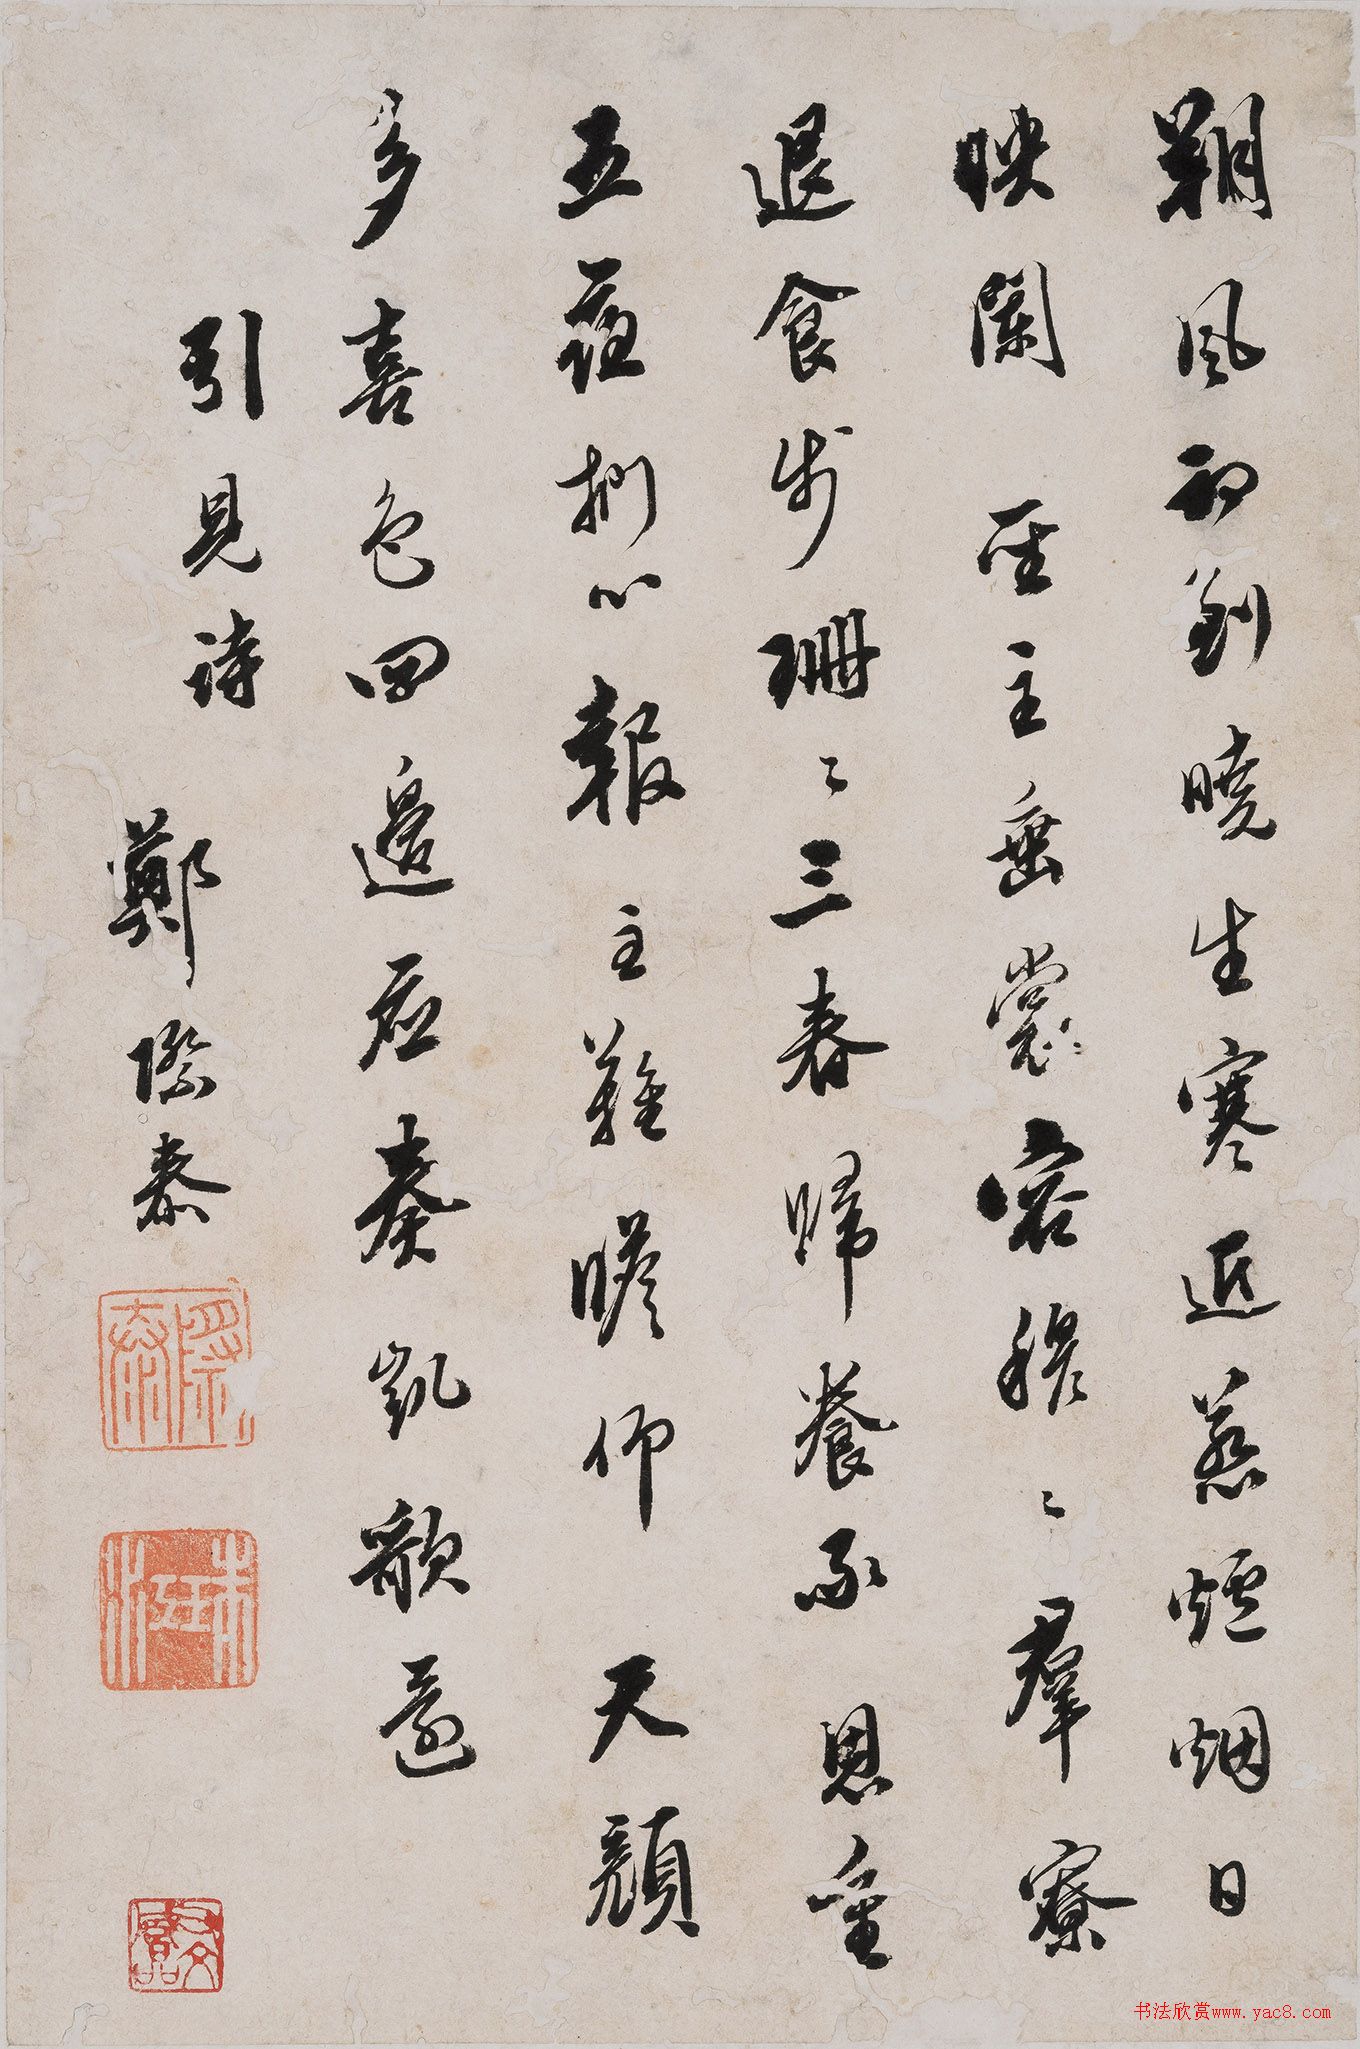 朔風初到曉生寒近惹爐烟日
映闌 聖主垂裳容穆〻羣寮
退食步珊〻三春歸養承 恩重
五夜捫心報 主難瞻仰 天顏
多喜色四邊應奏凱歌還
引見詩 鄭際泰
際泰
書法欣赏www.yac8.com